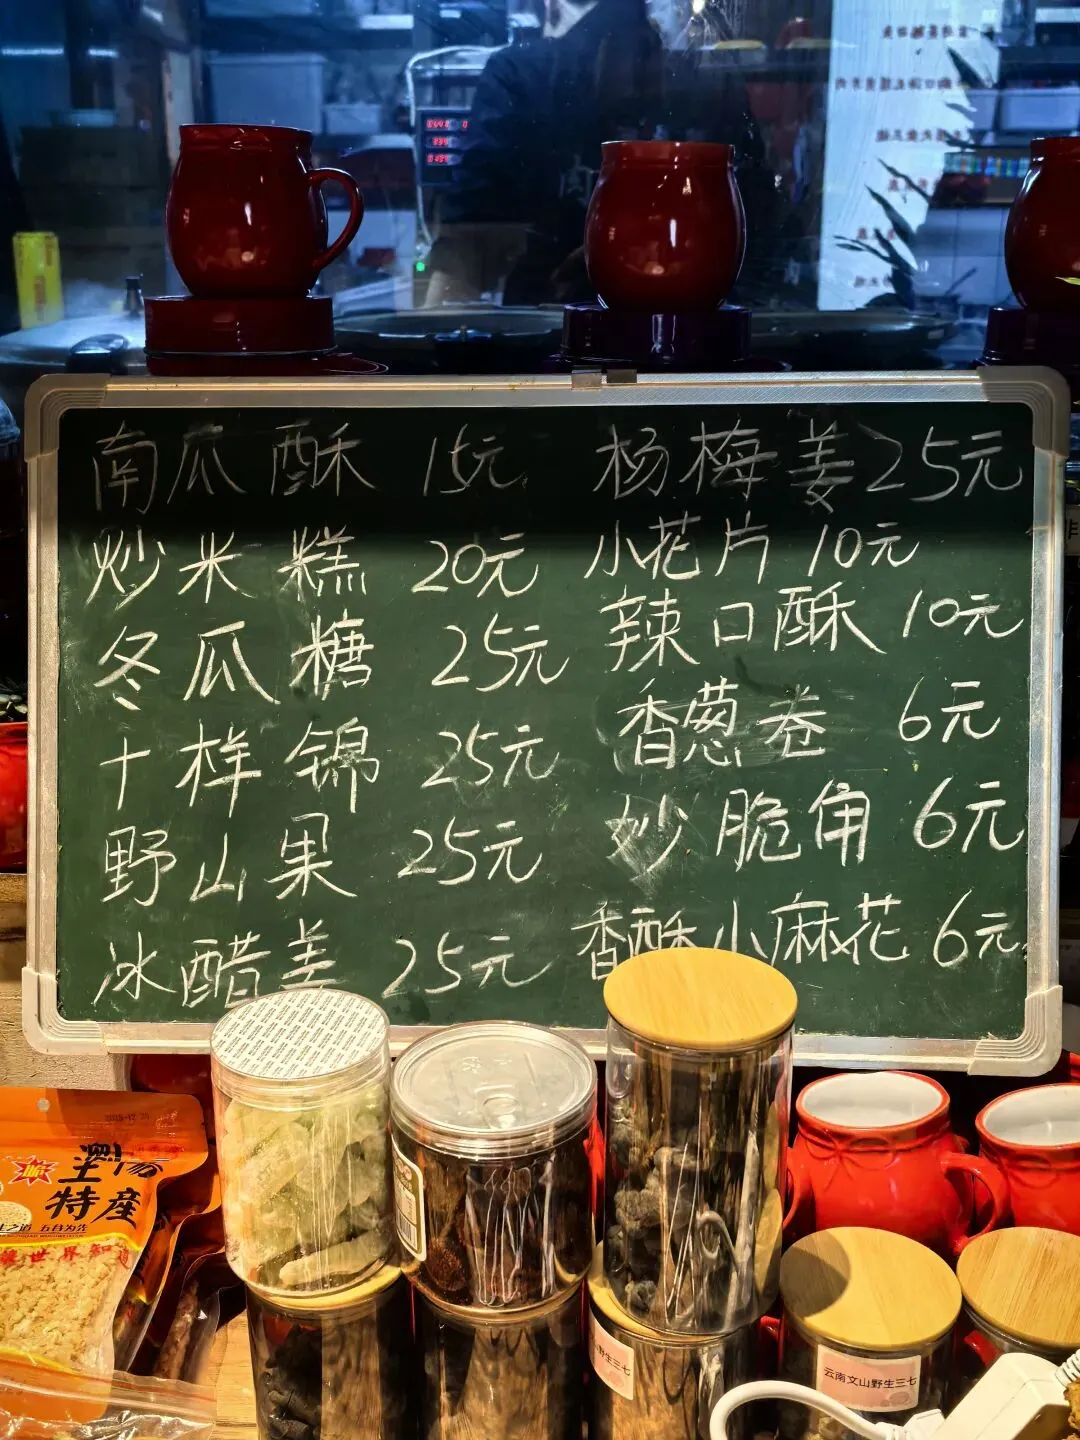 南瓜酥 15元
炒米糕 20元
冬瓜糖 25元
十样锦 25元
野山果 25元
冰醋姜 25元
杨梅姜 25元
小花片 10元
辣口酥 10元
香葱卷 6元
炒脆角 6元
香酥小麻花 6元
特産
野生三七
云南文山野生三七